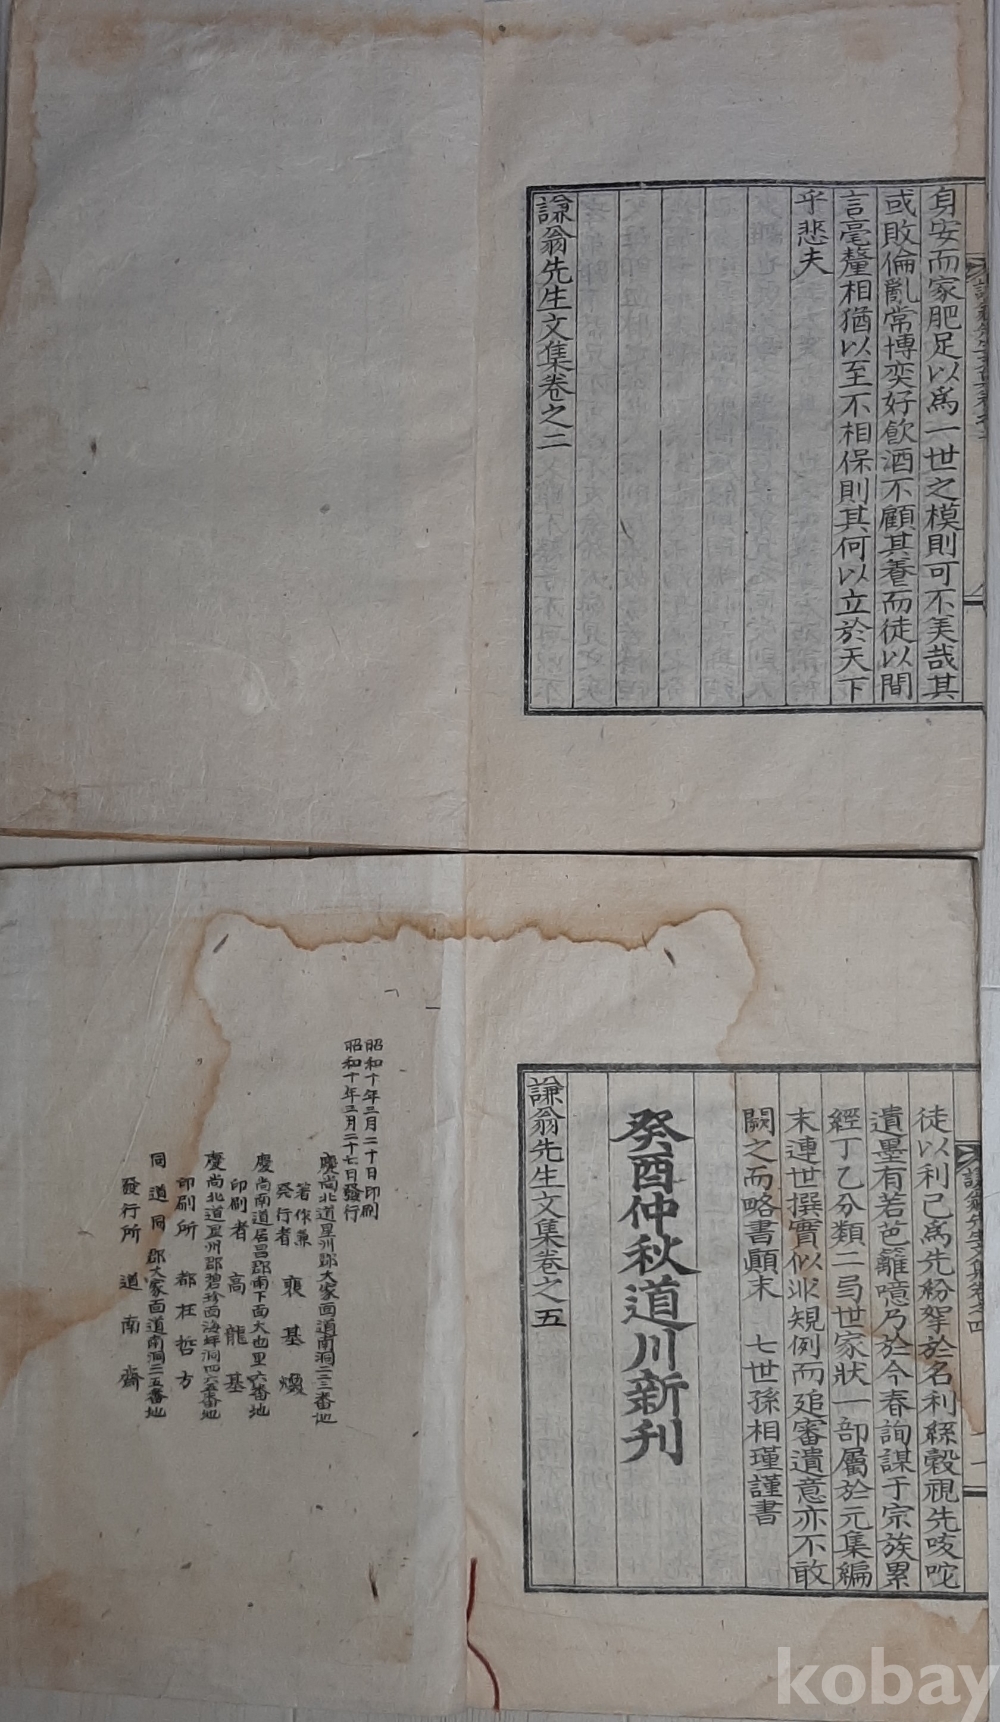 身安而家肥足以爲一世之模則可不美哉其
或敗倫亂常博奕好飮酒不顧其養而徒以間
言毫釐相猶以至不相保則其何以立於天下
乎悲夫
謙翁先生文集卷之二
徒以利己爲先紛挐於名利絲穀視先咳唾
遺墨有若芭籬噫乃於今春詢謀于宗族累
經丁乙分類二弓世家狀一部屬於元集編
末連世撰實似非規例而追審遺意亦不敢
闕之而略書顚末 七世孫相瑾謹書
癸酉仲秋道川新刊
謙翁先生文集卷之五
昭和十年三月二十日印刷
昭和十年三月二十七日發行
慶尙北道星州郡大家面道南洞二三番地
著作兼
發行者 裵基煥
慶尙南道居昌郡南下面大也里六番地
印刷者 高龍基
慶尙北道星州郡碧珍面海坪洞四六五番地
印刷所 都在哲方
同道同郡大家面道南洞二五番地
發行所 道南齋
kobay